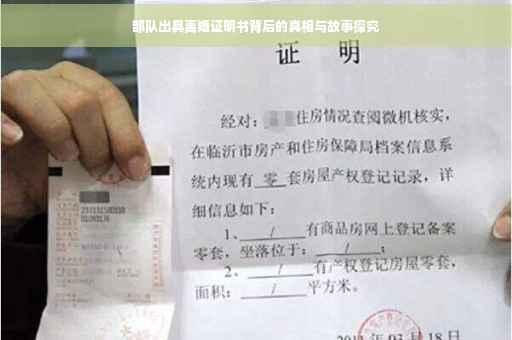 部队出具离婚证明书背后的真相与故事探究
证 明
经对: 住房情况查阅微机核实,
在临沂市房产和住房保障局档案信息系
统内现有 零 套房屋产权登记记录,详
细信息如下:
1、 / 有商品房网上登记备案
零套,坐落位于: / ;
2、 / 有产权登记房屋零套,
面积: / 平方米。
03 月 18 日